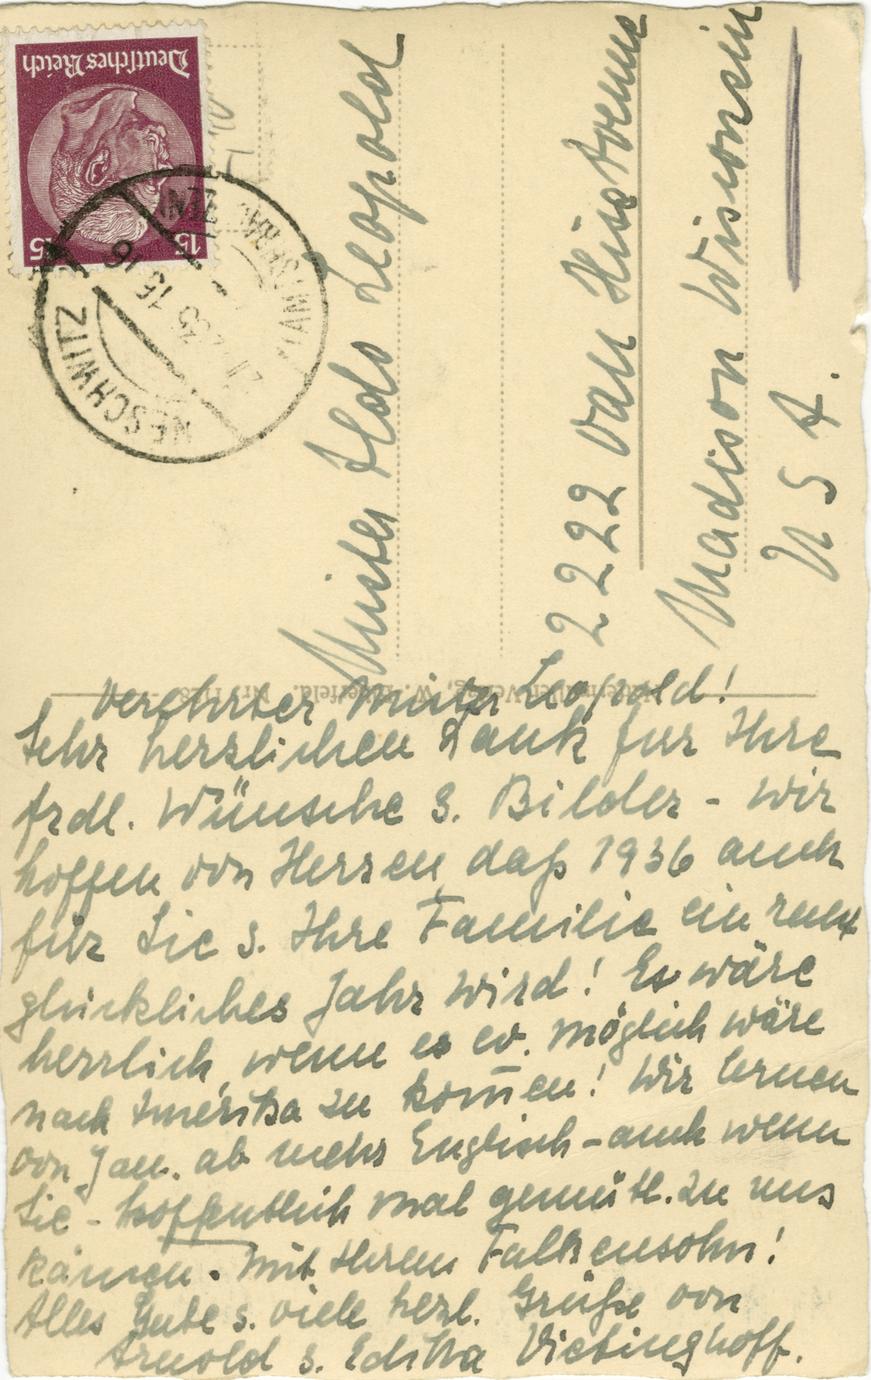 Deutsches Reich
15
15
NESCHWITZ
Mister Aldo Leopold
2222 Van Hise Avenue
Madison Wisconsin
U S A.
Verehrter Mister Leopold!
Sehr herzlichen Dank für Ihre
frdl. Wünsche s. Bilder - Wir
hoffen von Herzen, daß 1936 auch
für Sie s. Ihre Familie ein recht
glückliches Jahr wird! Es wäre
herrlich, wenn es ev. möglich wäre
nach Amerika zu kom̅en! Wir lernen
von Jan. ab mehr Englisch - auch wenn
Sie - hoffentlich mal gemütl. zu uns
kämen. Mit Ihrem Falkensohn!
Alles Gute s. viele herzl. Grüße von
Arnold s. Editha Vietinghoff.